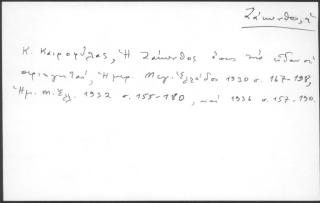 Ζάκυνθος, ἡ
Κ. Καιροφύλας, Ἡ Ζάκυνθος ὅπως τὴν εἶδαν οἱ
περιηγηταί, Ἡμερ. Μεγ. Ἑλλάδος 1930 σ. 167-198,
Ἡμ. Μ. Ἑλλ. 1932 σ. 155-180, καὶ 1936 σ. 157-190.